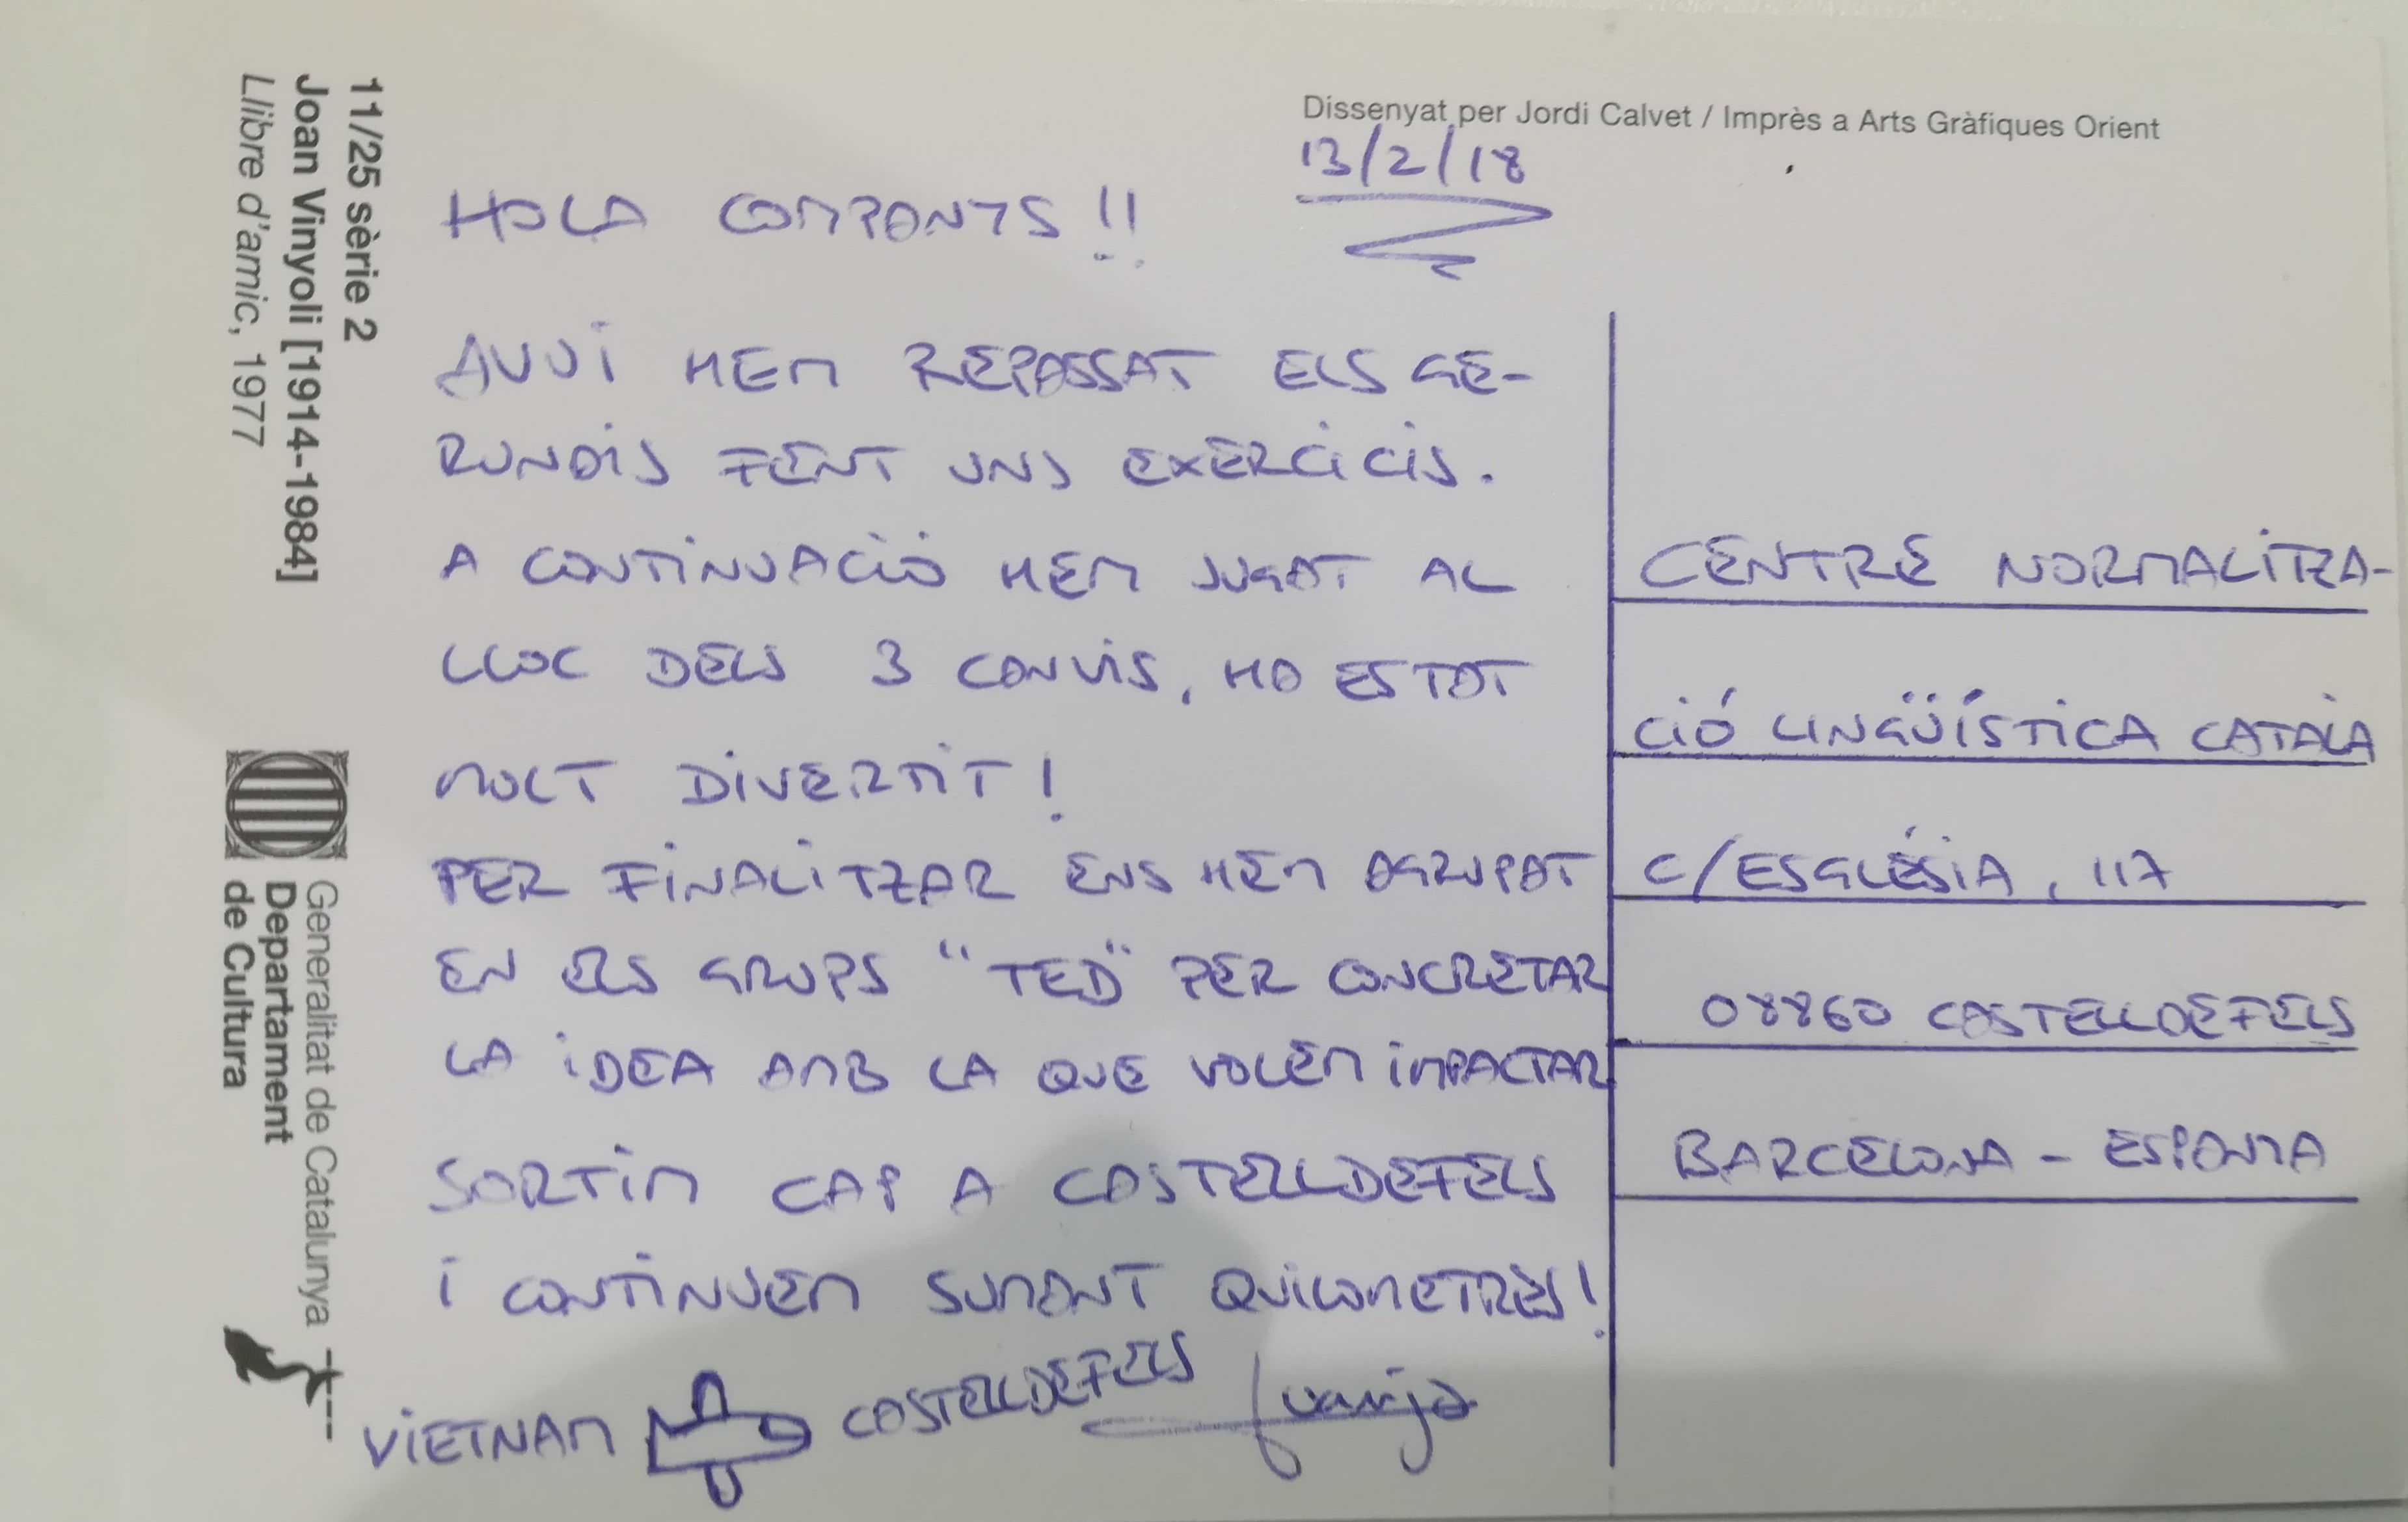 11/25 sèrie 2
Joan Vinyoli [1914-1984]
Llibre d'amic, 1977
Generalitat de Catalunya
Departament
de Cultura
Dissenyat per Jordi Calvet / Imprès a Arts Gràfiques Orient
13/2/18
HOLA COMPANYS !!
AVUI HEM REPASSAT ELS GE-
RUNDIS FENT UNS EXERCICIS.
A CONTINUACIÓ HEM JUGAT AL
LLOC DELS 3 CANVIS, HA ESTAT
MOLT DIVERTIT!
PER FINALITZAR ENS HEM AGRUPAT
EN ELS GRUPS "TED" PER CONCRETAR
LA IDEA AMB LA QUE VOLEM IMPACTAR
SORTIM CAP A CASTELLDEFELS
I CONTINUEM SUMANT QUILOMETRES!
VIETNAM CASTELLDEFELS
CENTRE NORMALITZA-
CIÓ LINGÜÍSTICA CATALÀ
C/ESGLÉSIA, 117
08860 CASTELLDEFELS
BARCELONA - ESPANYA